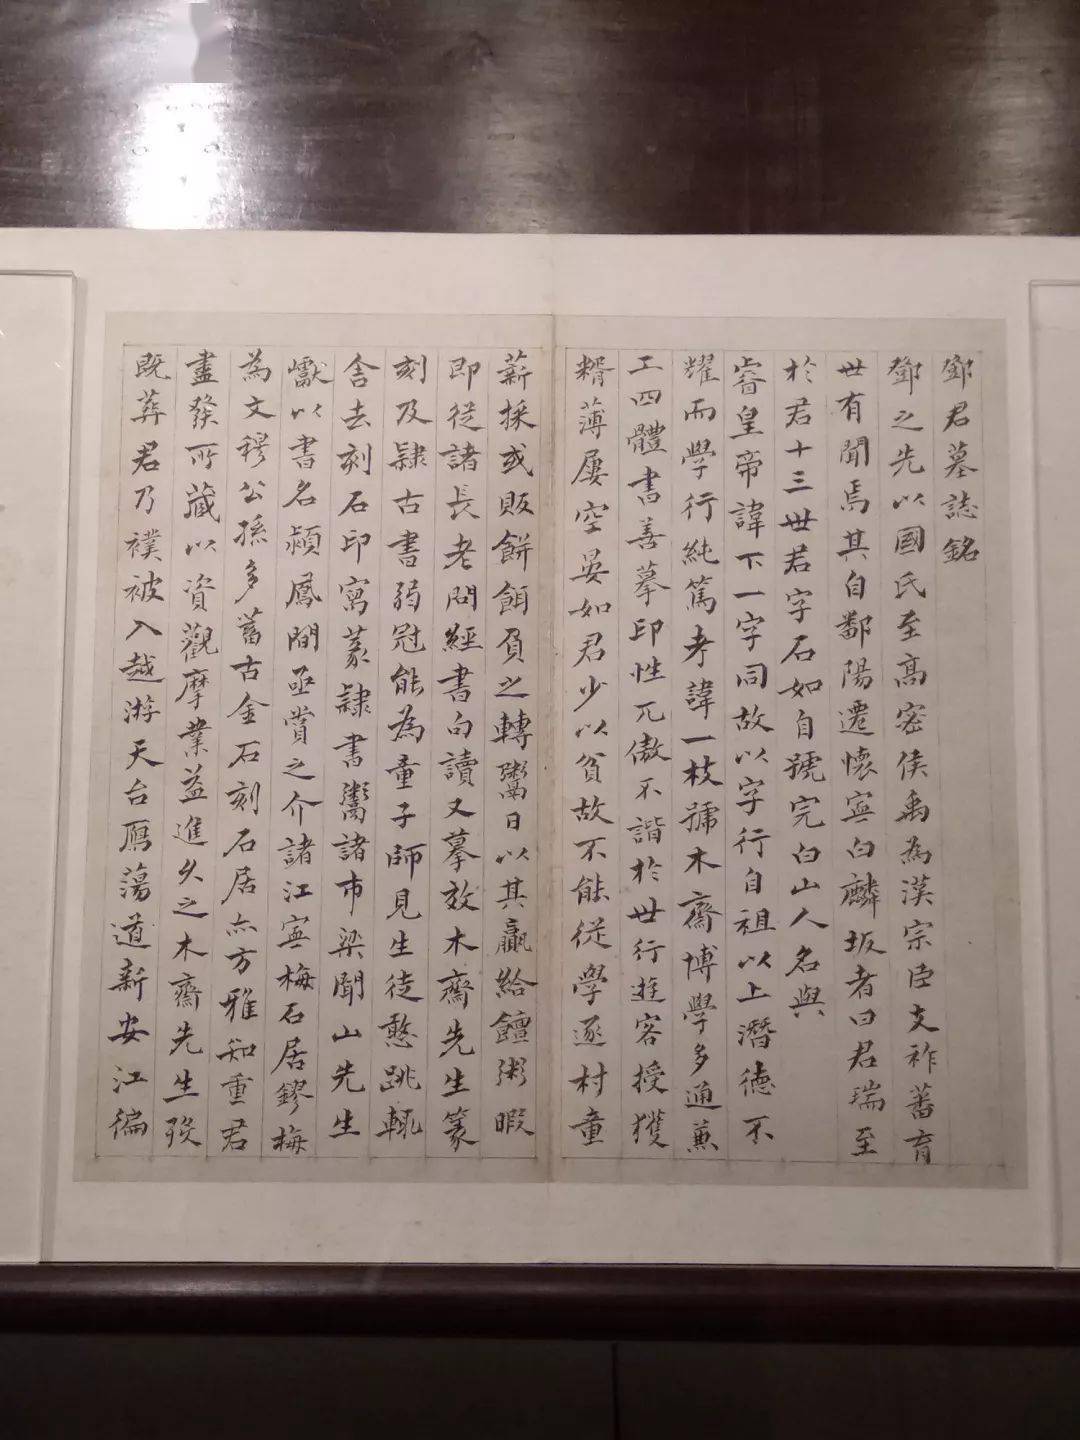 鄧君墓誌銘
鄧之先以國氏至高密侯禹為漢宗臣支祚蕃育
世有聞焉其自鄱陽遷懷寧白麟坂者曰君瑞至
於君十三世君字石如自號完白山人名與
睿皇帝諱下一字同故以字行自祖以上潛德不
耀而學行純篤考諱一枝號木齋博學多通兼
工四體書善摹印性兀傲不諧於世行遊客授獲
糈薄屢空晏如君少以貧故不能從學逐村童
薪採或販餅餌負之轉鬻日以其贏給饘粥暇
即從諸長老問經書句讀又摹效木齋先生篆
刻及隸古書弱冠能為童子師見生徒憨跳輒
舍去刻石印寫篆隸書鬻諸市梁聞山先生
巘以書名潁鳳間亟賞之介諸江寧梅石居鏐梅
為文穆公孫多舊古金石刻石居亦方雅知重君
盡發所藏以資觀摩業益進久之木齋先生歿
既葬君乃襆被入越游天台雁蕩道新安江徧